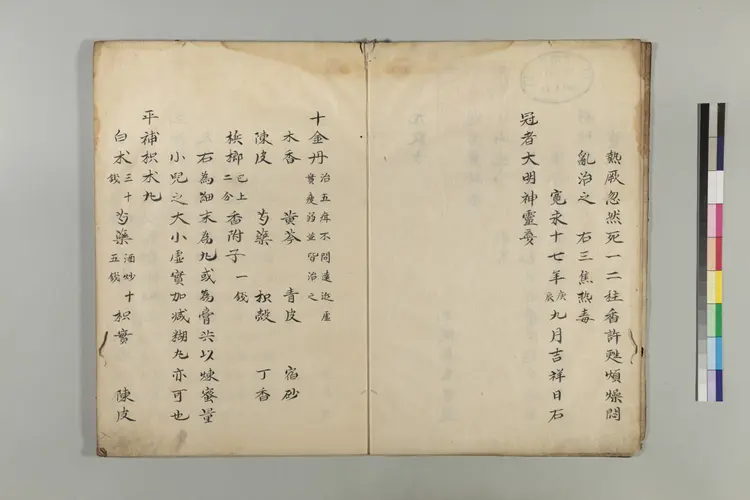 熱厥忽然死一二炷香許甦煩燥悶
亂治之　右三焦热毒
寛永十七年庚辰九月吉祥日石
冠者大明神靈夢
十金丹治五疳不問遠近虛實瘦弱並皆治之
木香　黄芩　青皮　宿砂
陳皮　芍藥　枳殼　丁香
梹榔已上二分香附子一錢
右為細末為丸或為膏共以煉蜜量
小児之大小虛實加减糊丸亦可也
平補枳朮丸
白朮三十錢芍藥酒炒十五錢枳實　陳皮